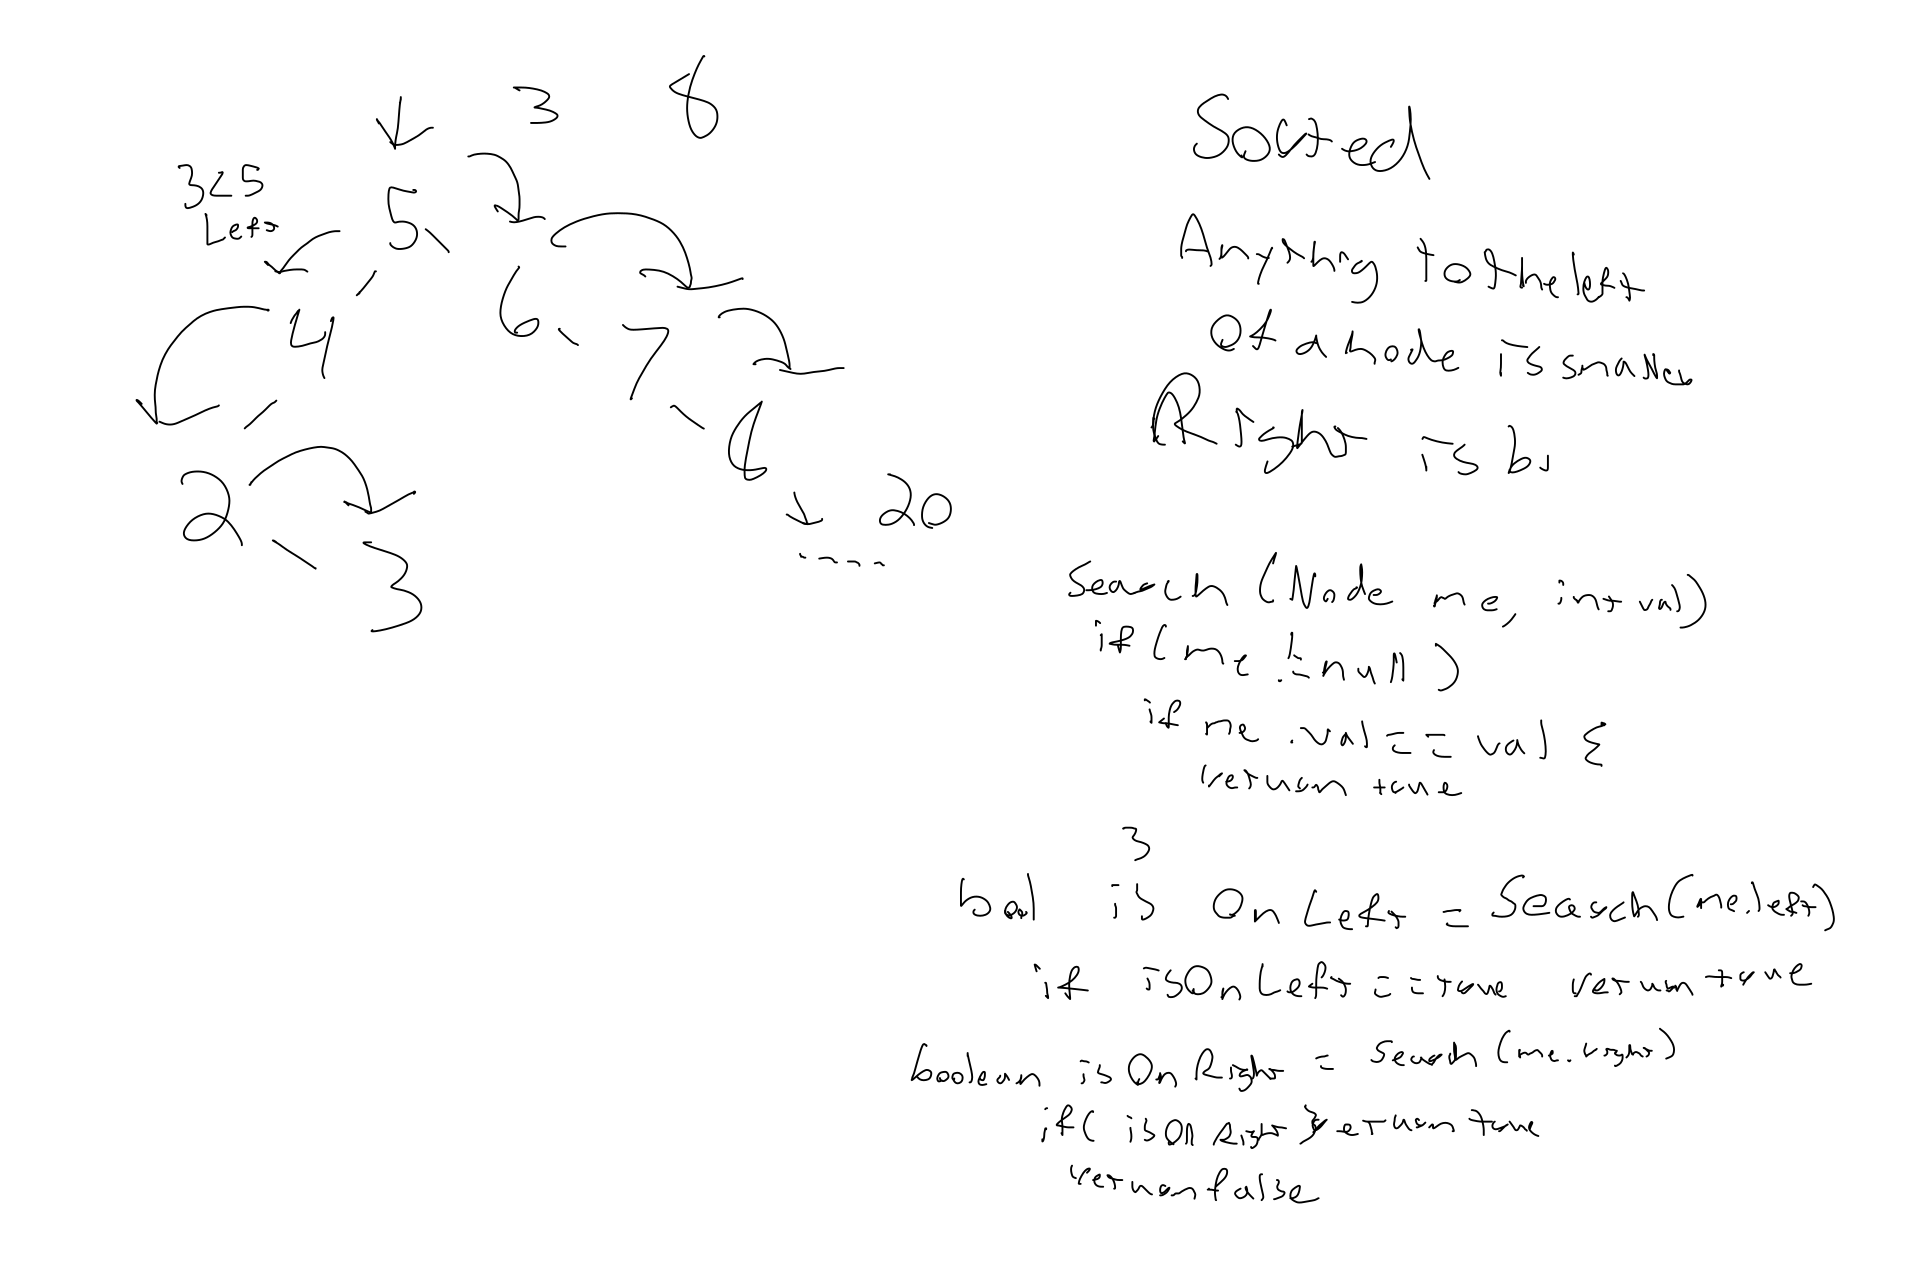 3 8
3<5
Left
5
4 6 7
8
2 3
20
....
Sorted
Anything to the left
of a node is smaller
Right is bi
Search (Node me, int val)
if (me != null)
if me .val == val {
return true
}
bool is OnLeft = Search(me.left)
if isOnLeft == true return true
boolean isOnRight = Search (me.right)
if( isOnRight) return true
return false